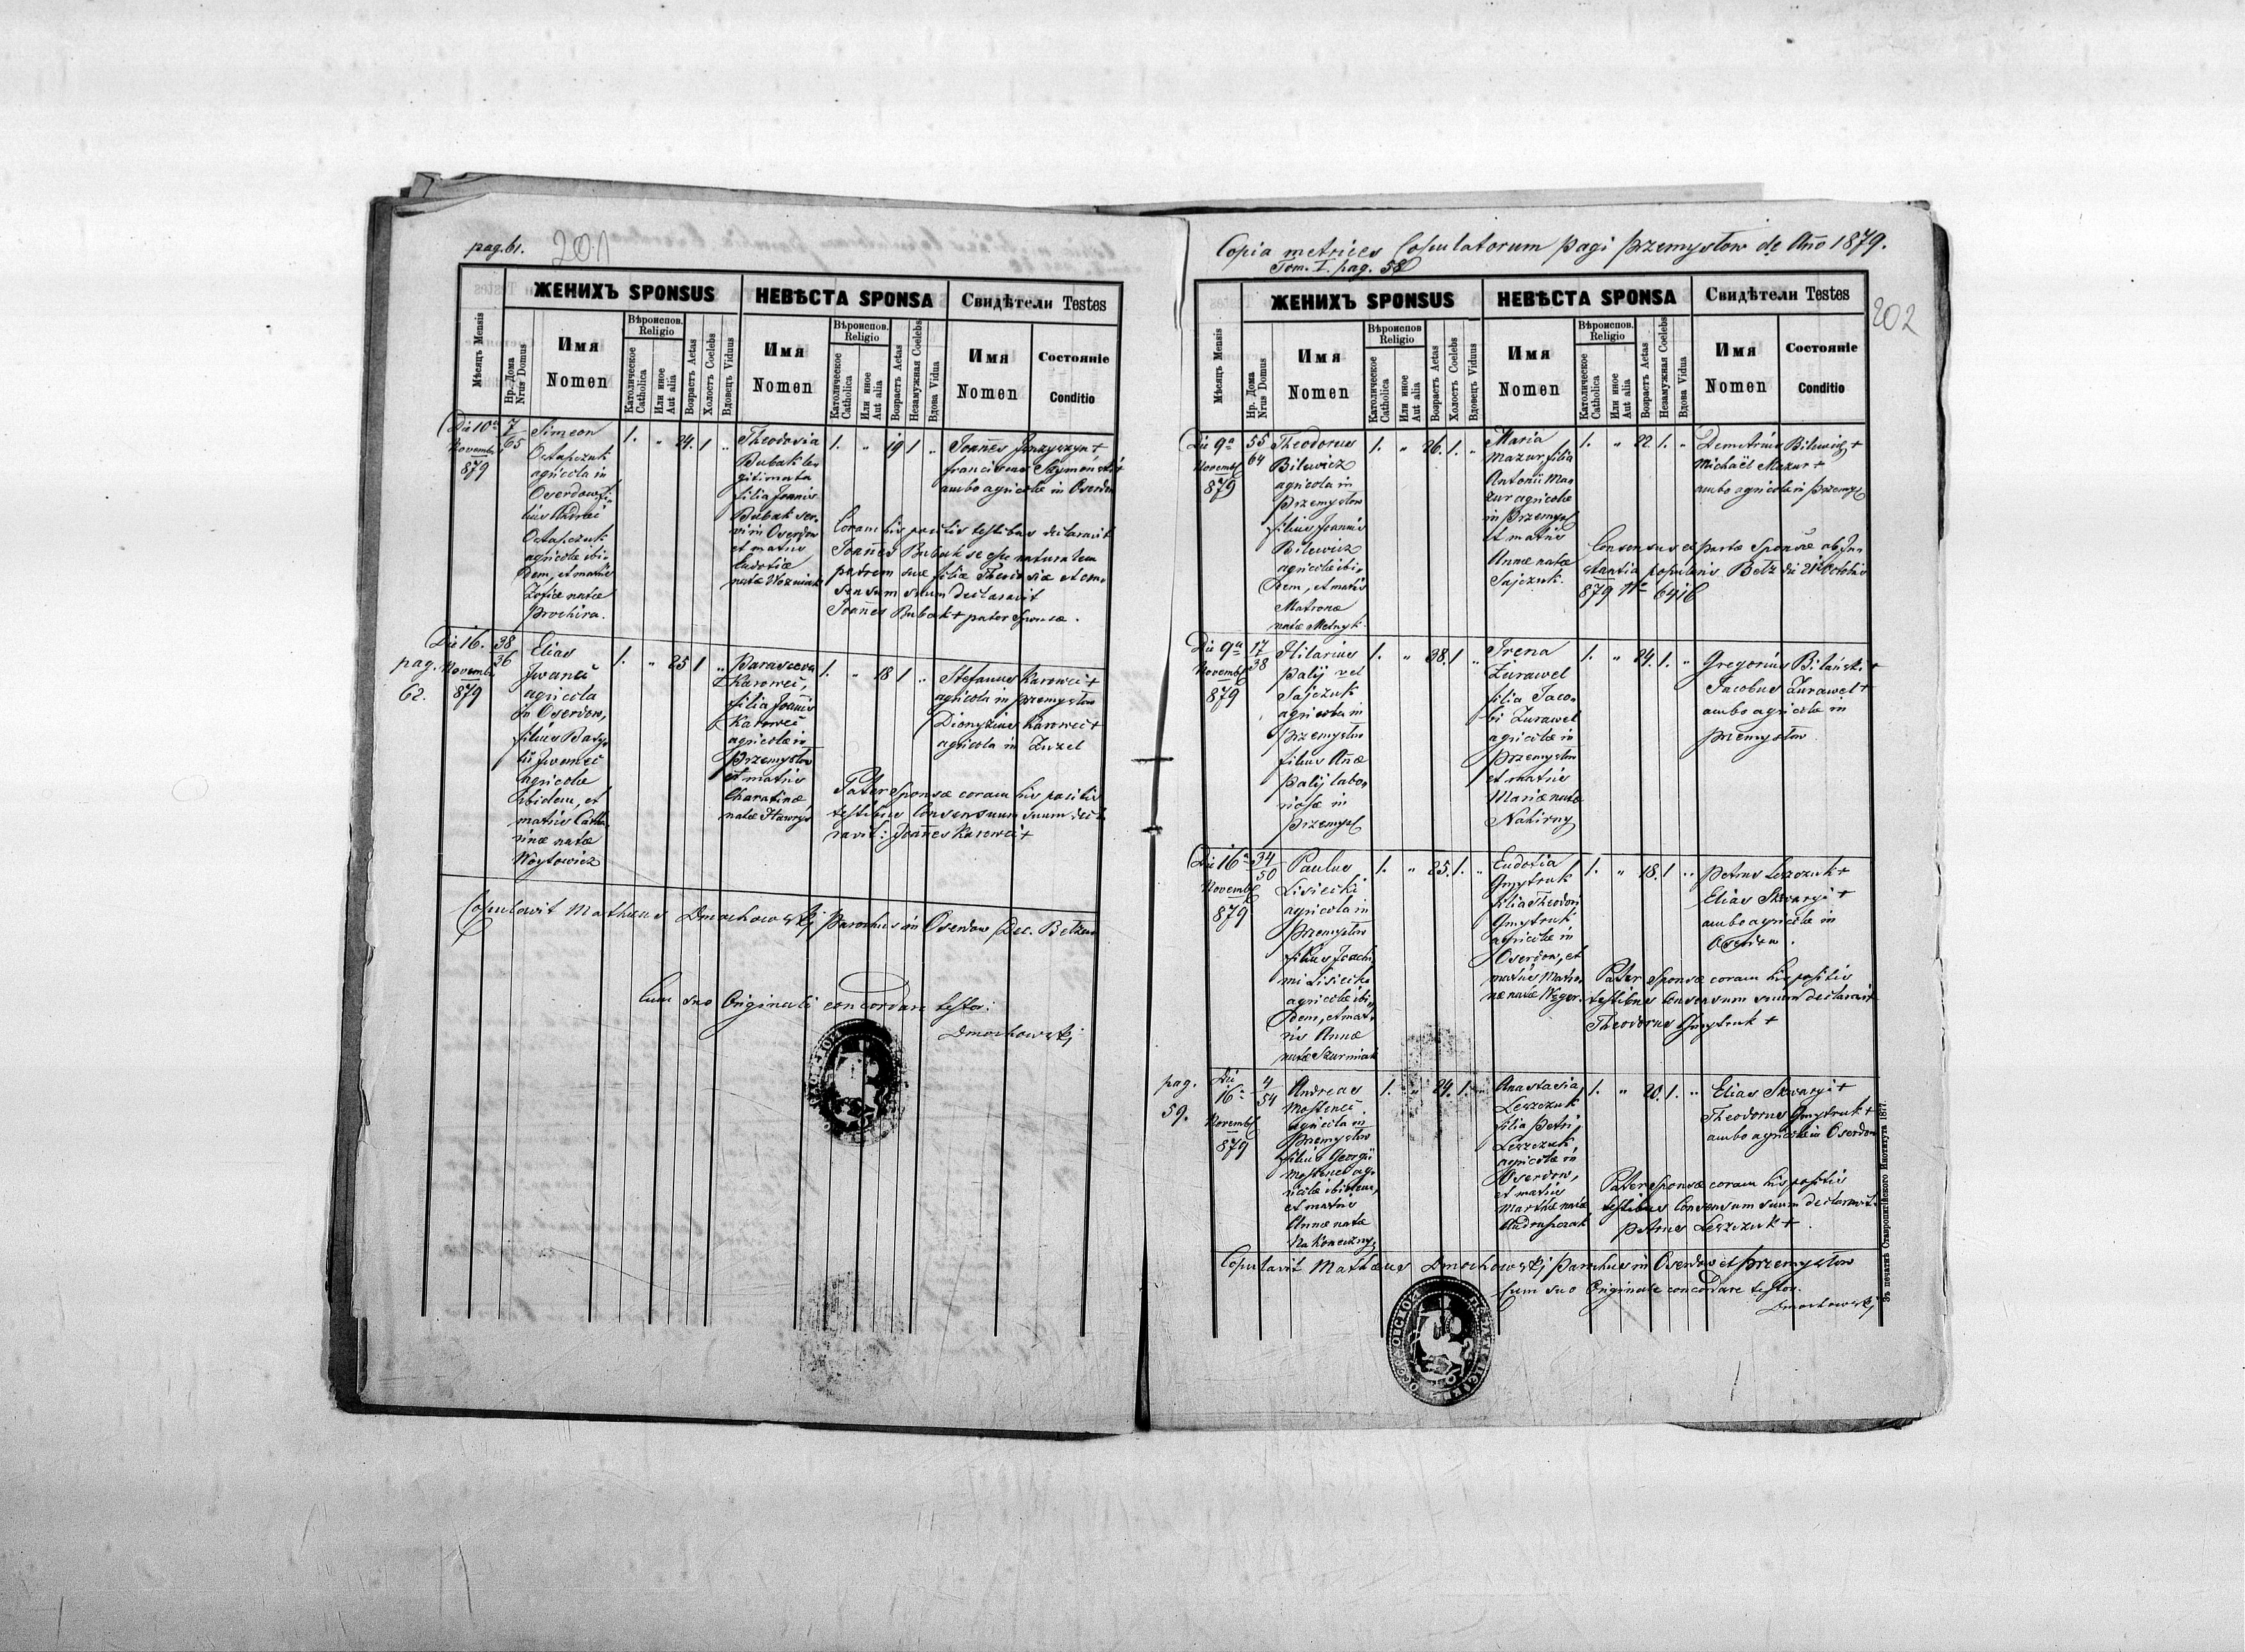 pag. 61.
201
ЖЕНИХЪ SPONSUS
НЕВѢСТА SPONSA
Свидѣтели Testes
Мѣсяцъ Mensis
Нр. Дома
Nrus Domus
Имя
Nomen
Вѣроиспов.
Religio
Католическое
Catholica
Или иное
Aut alia
Возрастъ Aetas
Холостъ Coelebs
Вдовецъ Viduus
Имя
Nomen
Вѣроиспов.
Religio
Католическое
Catholica
Или иное
Aut alia
Возрастъ Aetas
Незамужная Coelebs
Вдова Vidua
Имя
Nomen
Состояніе
Conditio
Die 10a
Novembr
879
7
65
Simeon
Ostapczuk
agricola in
Oserdow fi-
lius Andrei
Ostapczuk
agricolae ibi-
dem, et matris
Zofiae natae
Prochira.
1. " 24. 1 "
Theodosia
Bubak le-
gitimata
filia Joannis
Bubak ser-
vi in Oserdow
et matris
Eudotiae
natae Wozniak
1. " 19 1 "
Joannes +
Franciscus +
ambo agricolae in Oserdow
Coram his positis testibus declaravit
Joannes Bubak se esse naturalem
patrem suae filiae Theodosiae et con-
sensum suum declaravit
Joannes Bubak + pater Sponsae.
pag.
62.
Die 16.
Novembr
879
38
36
Elias
Iwaneć
agricola
in Oserdow,
filius Basy-
lii Iwaneć
agricolae
ibidem, et
matris Catha-
rinae natae
Woytowicz
1. " 25 1 "
Parasceva
Karoweć,
filia Joannis
Karoweć
agricolae in
Przemysłow
et matris
Charatinae
natae Hawryś
1. " 18 1 "
Stefanus Karoweć +
agricola in Przemysłow
Dionyzius Karoweć +
agricola in Zuzel
Pater Sponsae coram his positis
testibus Consensum suum decla-
ravit: Joannes Karoweć +
Copulavit Mathaeus Dmochowskij Parochus in Oserdow Dec. Belzen
Cum suo Originali concordare testor.
Dmochowskij
Copia metrices Copulatorum pagi Przemysłow de Ano 1879.
Tom. I. pag. 58
202
ЖЕНИХЪ SPONSUS
НЕВѢСТА SPONSA
Свидѣтели Testes
Мѣсяцъ Mensis
Нр. Дома
Nrus Domus
Имя
Nomen
Вѣроиспов
Religio
Католическое
Catholica
Или иное
Aut alia
Возрастъ Aetas
Холостъ Coelebs
Вдовецъ Viduus
Имя
Nomen
Вѣроиспов.
Religio
Католическое
Catholica
Или иное
Aut alia
Возрастъ Aetas
Незамужная Coelebs
Вдова Vidua
Имя
Nomen
Состояніе
Conditio
Die 9a
Novemb
879
55
64
Theodorus
Bilewicz
agricola in
Przemysłow
filius Joannis
Bilewicz
agricolae ibi-
dem, et matris
Matronae
natae Melnyk
1. " 26. 1. "
Maria
Mazur filia
Antonii Ma-
zur agricolae
in Przemysł
et matris
Annae natae
Sajczuk.
1. " 22. 1. "
Demetrius Bilewicz +
Michaël Mazur +
ambo agricolae in Przemysł
Consensus ex parte Sponsae ab In-
stantia popularis Belz die 21 Octobris
879 No 6416
Die 9a
Novemb
879
17
38
Hilarius
Palij vel
Sajczuk
agricola in
Przemysłow
filius Anae
Palij labo-
riosae in
Przemysł
1. " 38. 1 "
Irena
Zurawel
filia Jaco-
bi Zurawel
agricolae in
Przemysłow
et matris
Mariae natae
Nahirny
1. " 24. 1. "
Gregorius +
Jacobus Zurawel +
ambo agricolae in
Przemysłow
Die 16a
Novemb
879
34
50
Paulus
Lisiecki
agricola in
Przemysłow
filius Joachi-
mi Lisiecki
agricolae ibi-
dem, et mat-
ris Annae
natae Szurmiak
1. " 25. 1. "
Eudotia
Gmytruk
filia Theodori
Gmytruk
agricolae in
Oserdow, et
matris Matro-
nae natae Weger.
1. " 18. 1 "
Petrus Leszczuk +
Elias Skwaryi +
ambo agricolae in
Oserdow.
Pater Sponsae coram his positis
testibus Consensum suum declaravit
Theodorus Gmytruk +
pag.
59.
Die
16a
Novemb
879
4
54
Andreas
Mosteneć.
agricola in
Przemysłow
filius Georgii
Mosteneć ag-
ricolae ibidem,
et matris
Annae natae
Nakoneczny
1. " 24. 1. "
Anastasia
Leszczuk
filia Petri
Leszczuk
agricolae in
Oserdow,
et matris
Marthae natae
Andruszczak
1. " 20. 1. "
Elias Skwaryi +
Theodorus Gmytruk +
ambo agricolae in Oserdow
Pater Sponsae coram his positis
testibus Consensum suum declaravit
Petrus Leszczuk +
Copulavit Mathaeus Dmochowskij Parochus in Oserdow et Przemysłow
Cum suo Originale concordare testor.
Dmochowskij
Зъ печатнѣ Ставропигійского Института 1877.